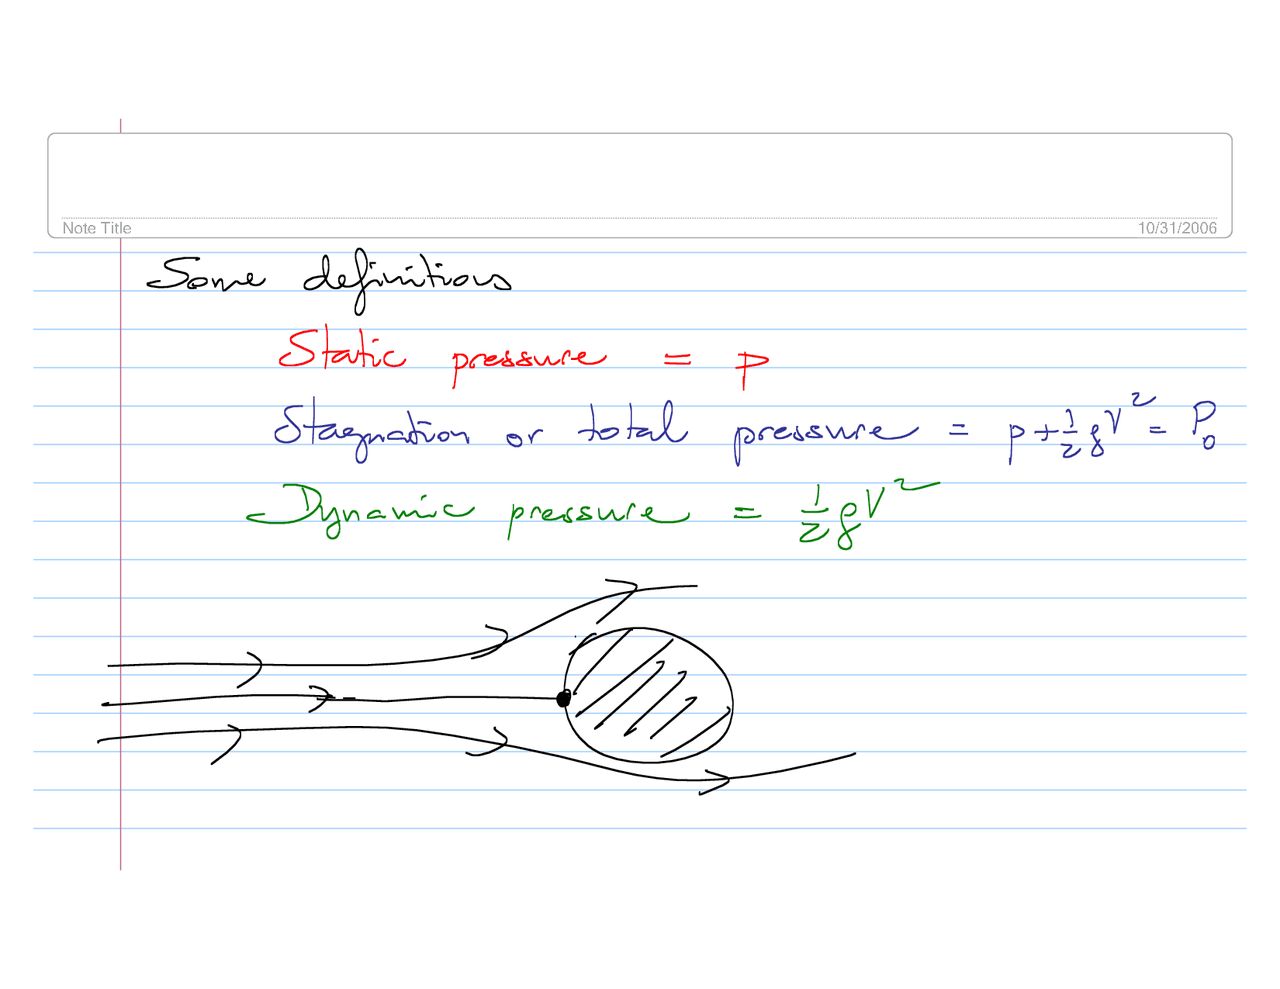 Note Title
10/31/2006
Some definitions
Static pressure = p
Stagnation or total pressure = p + 1/2 ρV² = P₀
Dynamic pressure = 1/2 ρV²